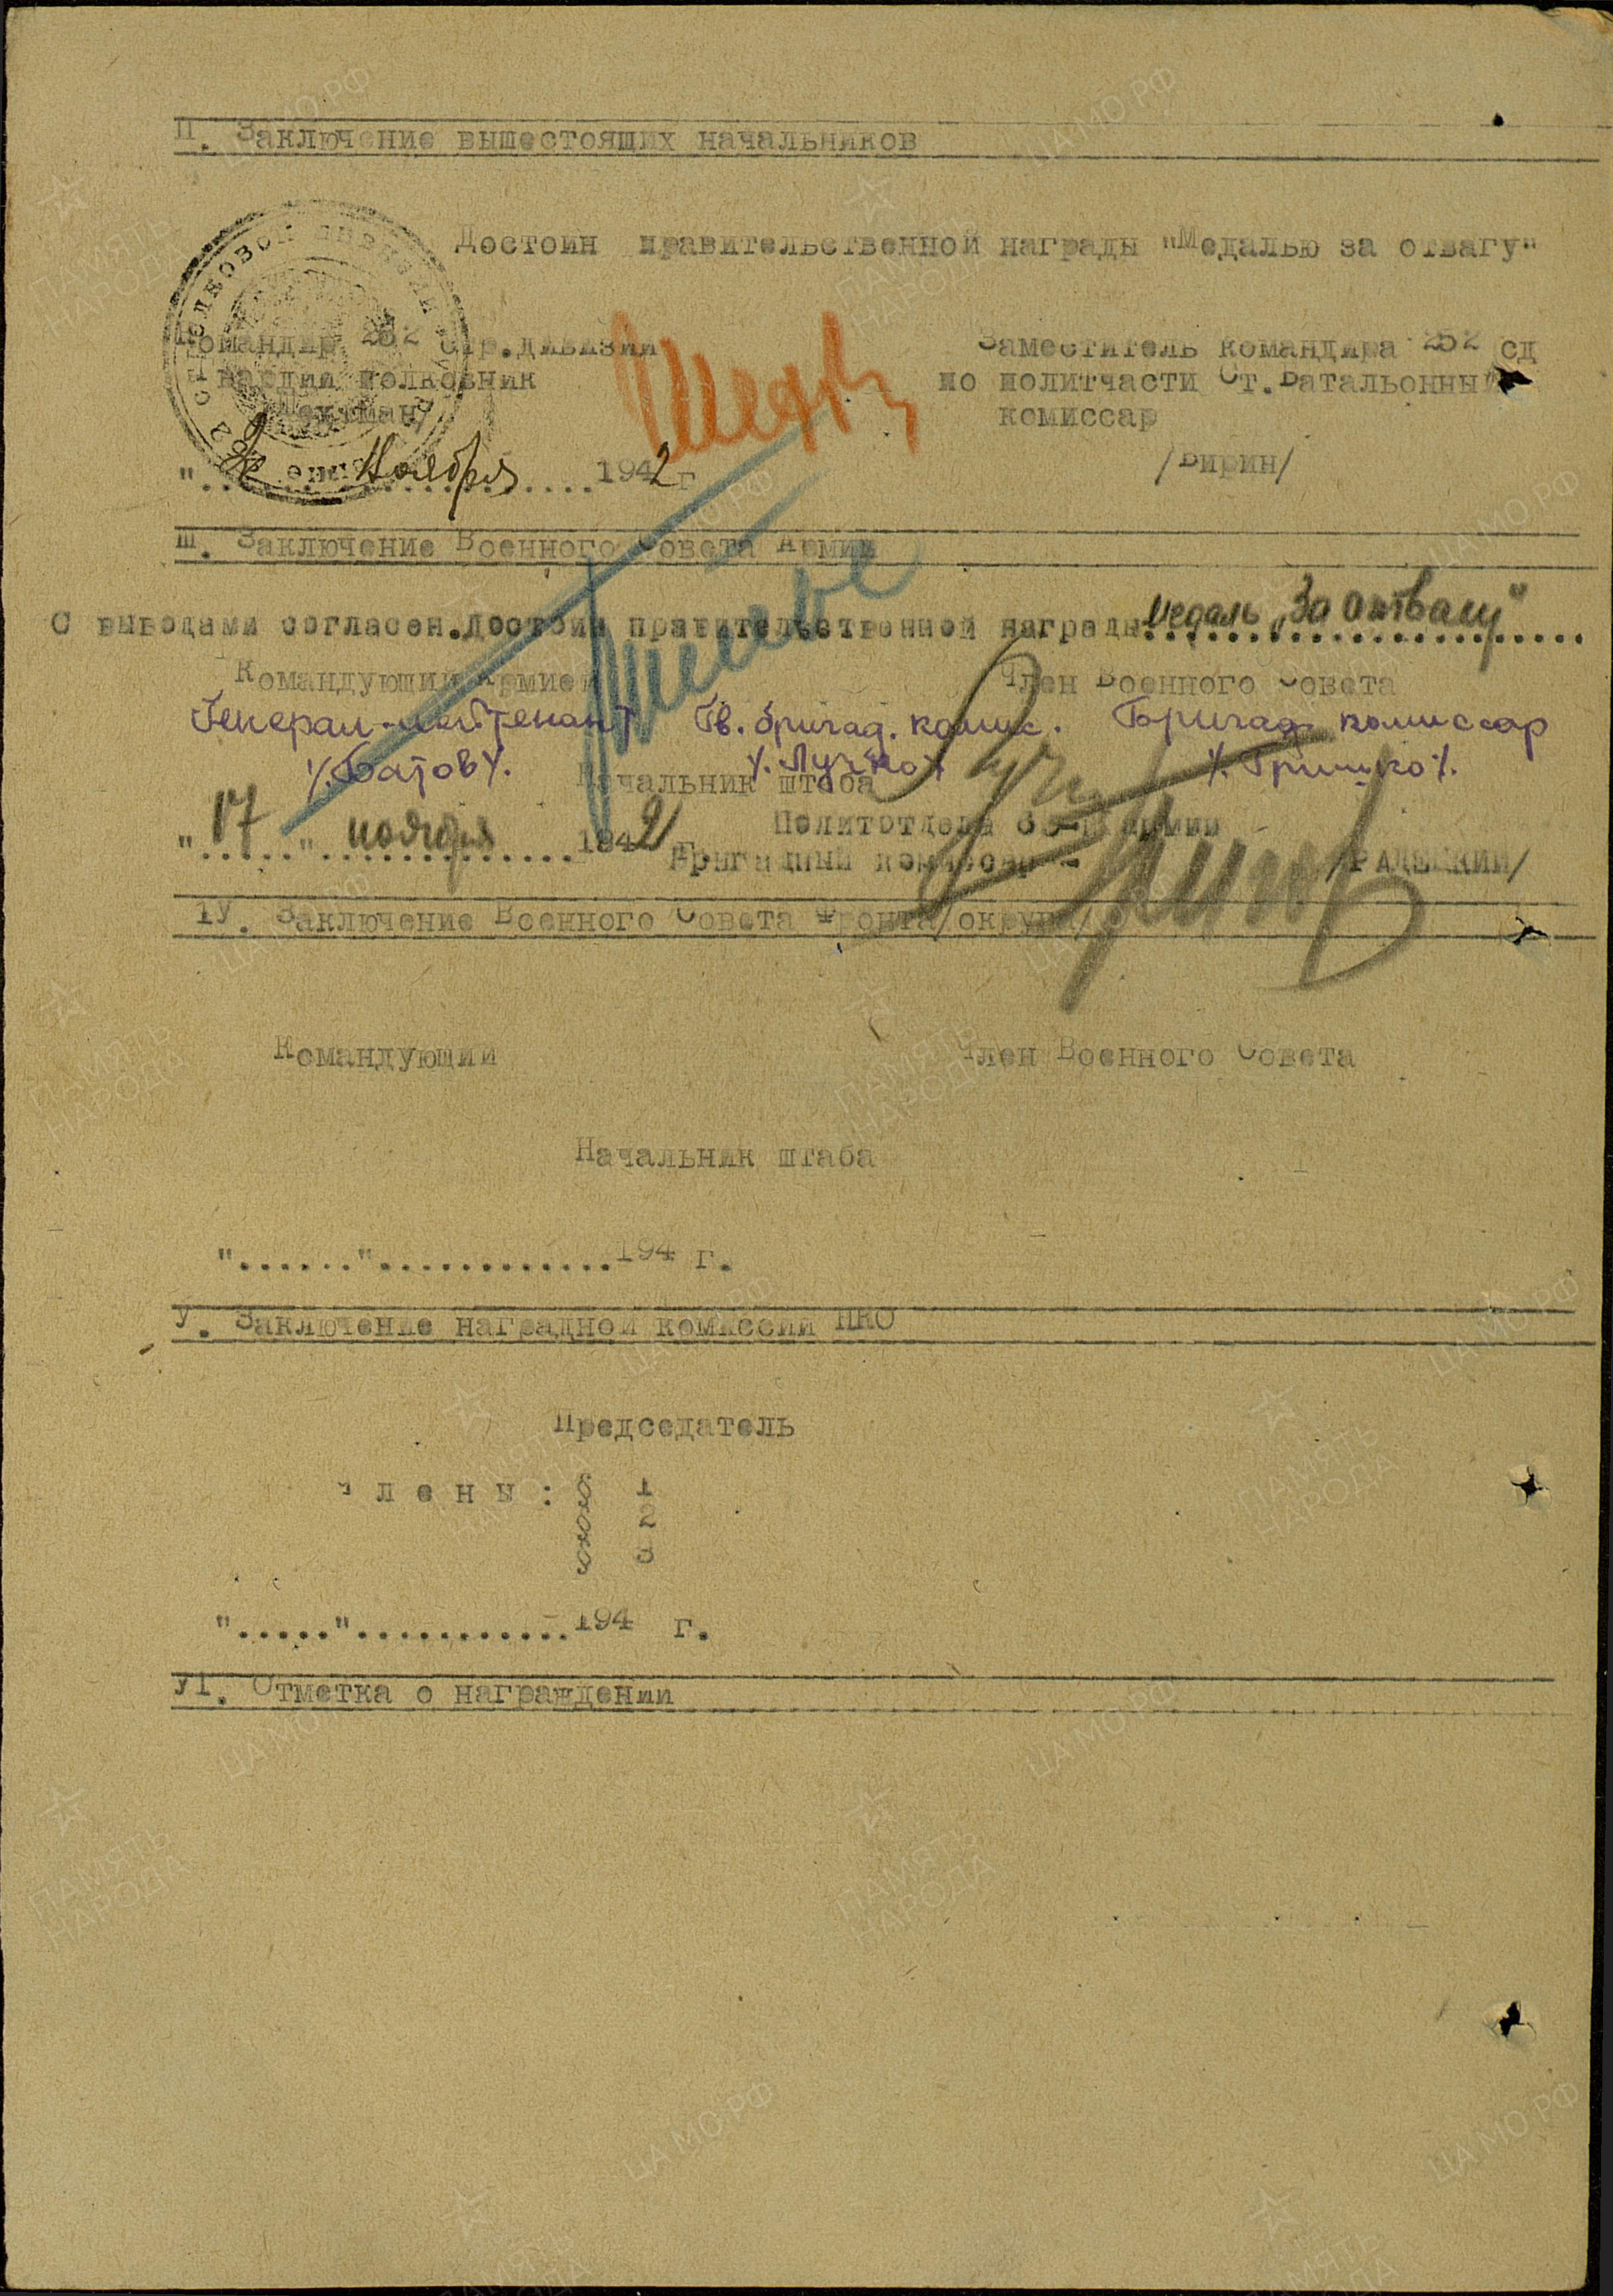 П. Заключение вышестоящих начальников
Достоин правительственной награды "Медалью за отвагу"
Командир 252 стр.дивизии
Заместитель командира 252 сд
гвардии полковник
по политчасти Ст.Батальонный
/Шехтман/
комиссар
/Бирин/
ноября 1942 г
Ш. Заключение Военного Совета Армии
С выводами согласен.Достоин правительственной награды медаль "За отвагу"
Командующий Армией
Член Военного Совета
Генерал-лейтенант
Гв. бригад. комис.
Бригад. комиссар
/.Батов/.
/.Лучко/
Начальник штаба
"17" ноября 1942 г.
Политотдела 65-й армии
Бригадный комиссар -
/РАДЕЦКИЙ/
1У. Заключение Военного Совета Фронта/округа/
Командующий
Член Военного Совета
Начальник штаба
"......"............194 г.
У. Заключение наградной комиссии НКО
Председатель
Члены: 1
2
3
"....."...........194 г.
У1. Отметка о награждении
ПАМЯТЬ НАРОДА
ЦА МО РФ